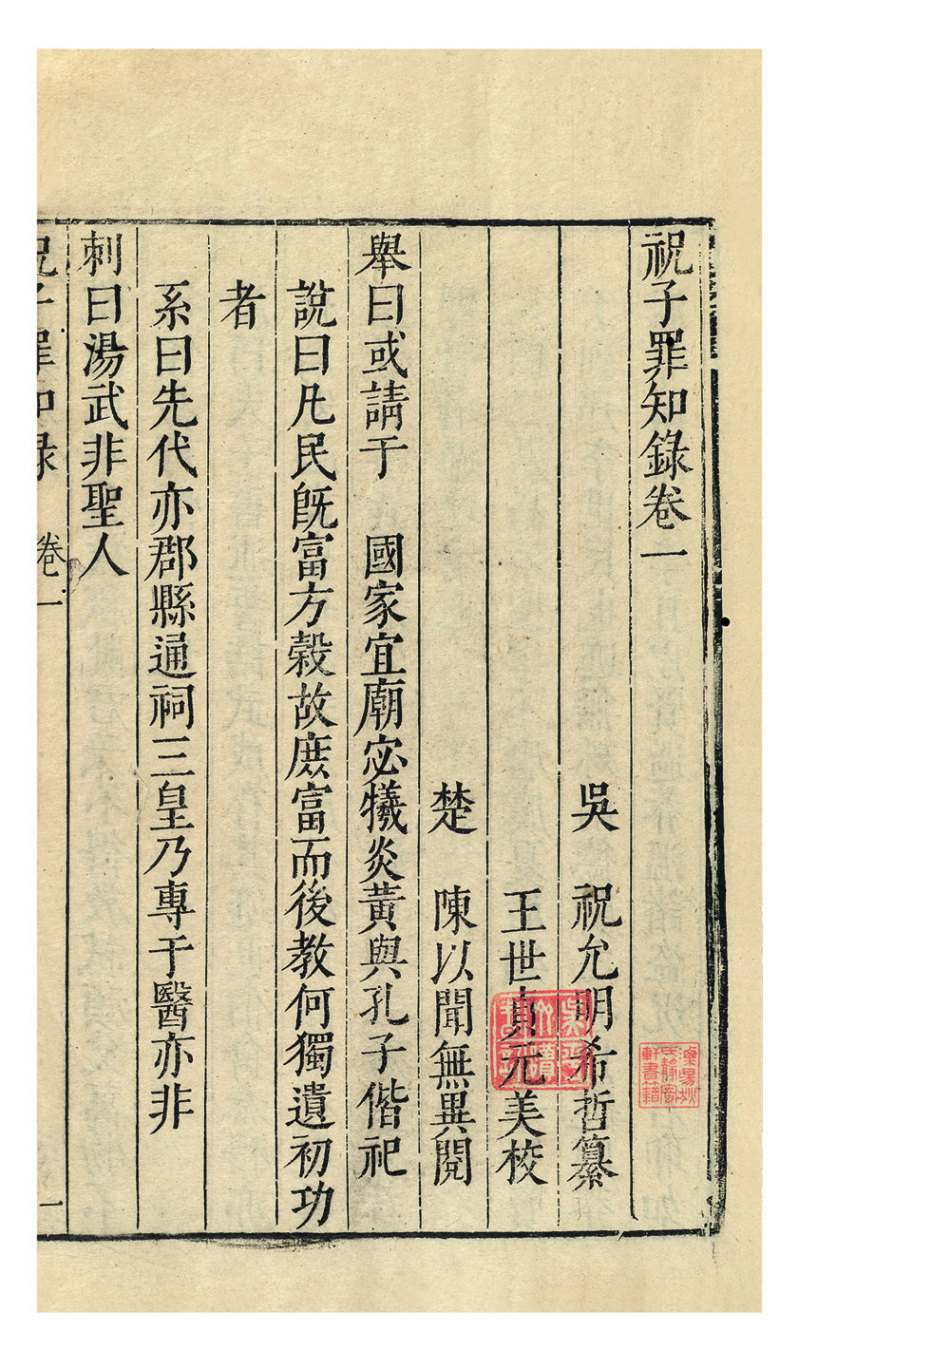 祝子罪知錄卷一
吳　祝允明希哲纂
王世貞元美校
楚　陳以聞無異閱
舉曰或請于　國家宜廟宓犧炎黃與孔子偕祀
說曰凡民旣富方榖故庶富而後教何獨遺初功
者
系曰先代亦郡縣通祠三皇乃專于醫亦非
刺曰湯武非聖人
祝子罪知錄　卷一　一